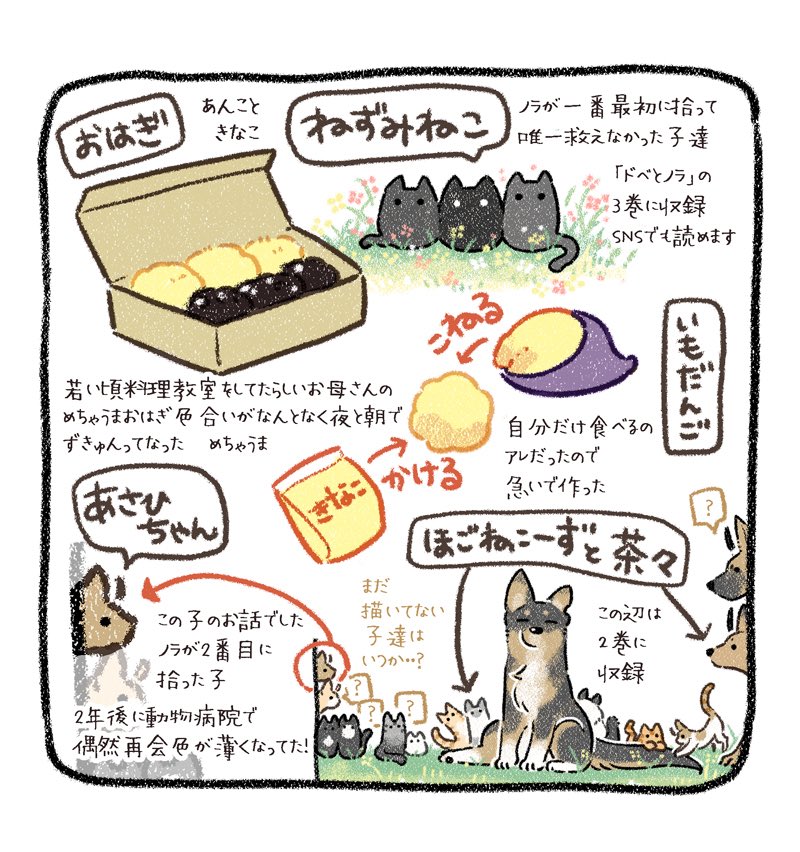 おはぎ
あんこと
きなこ
ねずみねこ
ノラが一番最初に拾って
唯一救えなかった子達
「ドベとノラ」の
3巻に収録
SNSでも読めます
若い頃料理教室をしてたらしいお母さんの
めちゃうまおはぎ色合いがなんとなく夜と朝で
ずきゅんってなった めちゃうま
こねる
いもだんご
きなこ
かける
自分だけ食べるの
アレだったので
急いで作った
あさひ
ちゃん
この子のお話でした
ノラが2番目に
拾った子
2年後に動物病院で
偶然再会色が薄くなってた!
ほごねこーずと茶々
まだ
描いてない
子達は
いつか‥?
この辺は
2巻に
収録
?
?
?
?